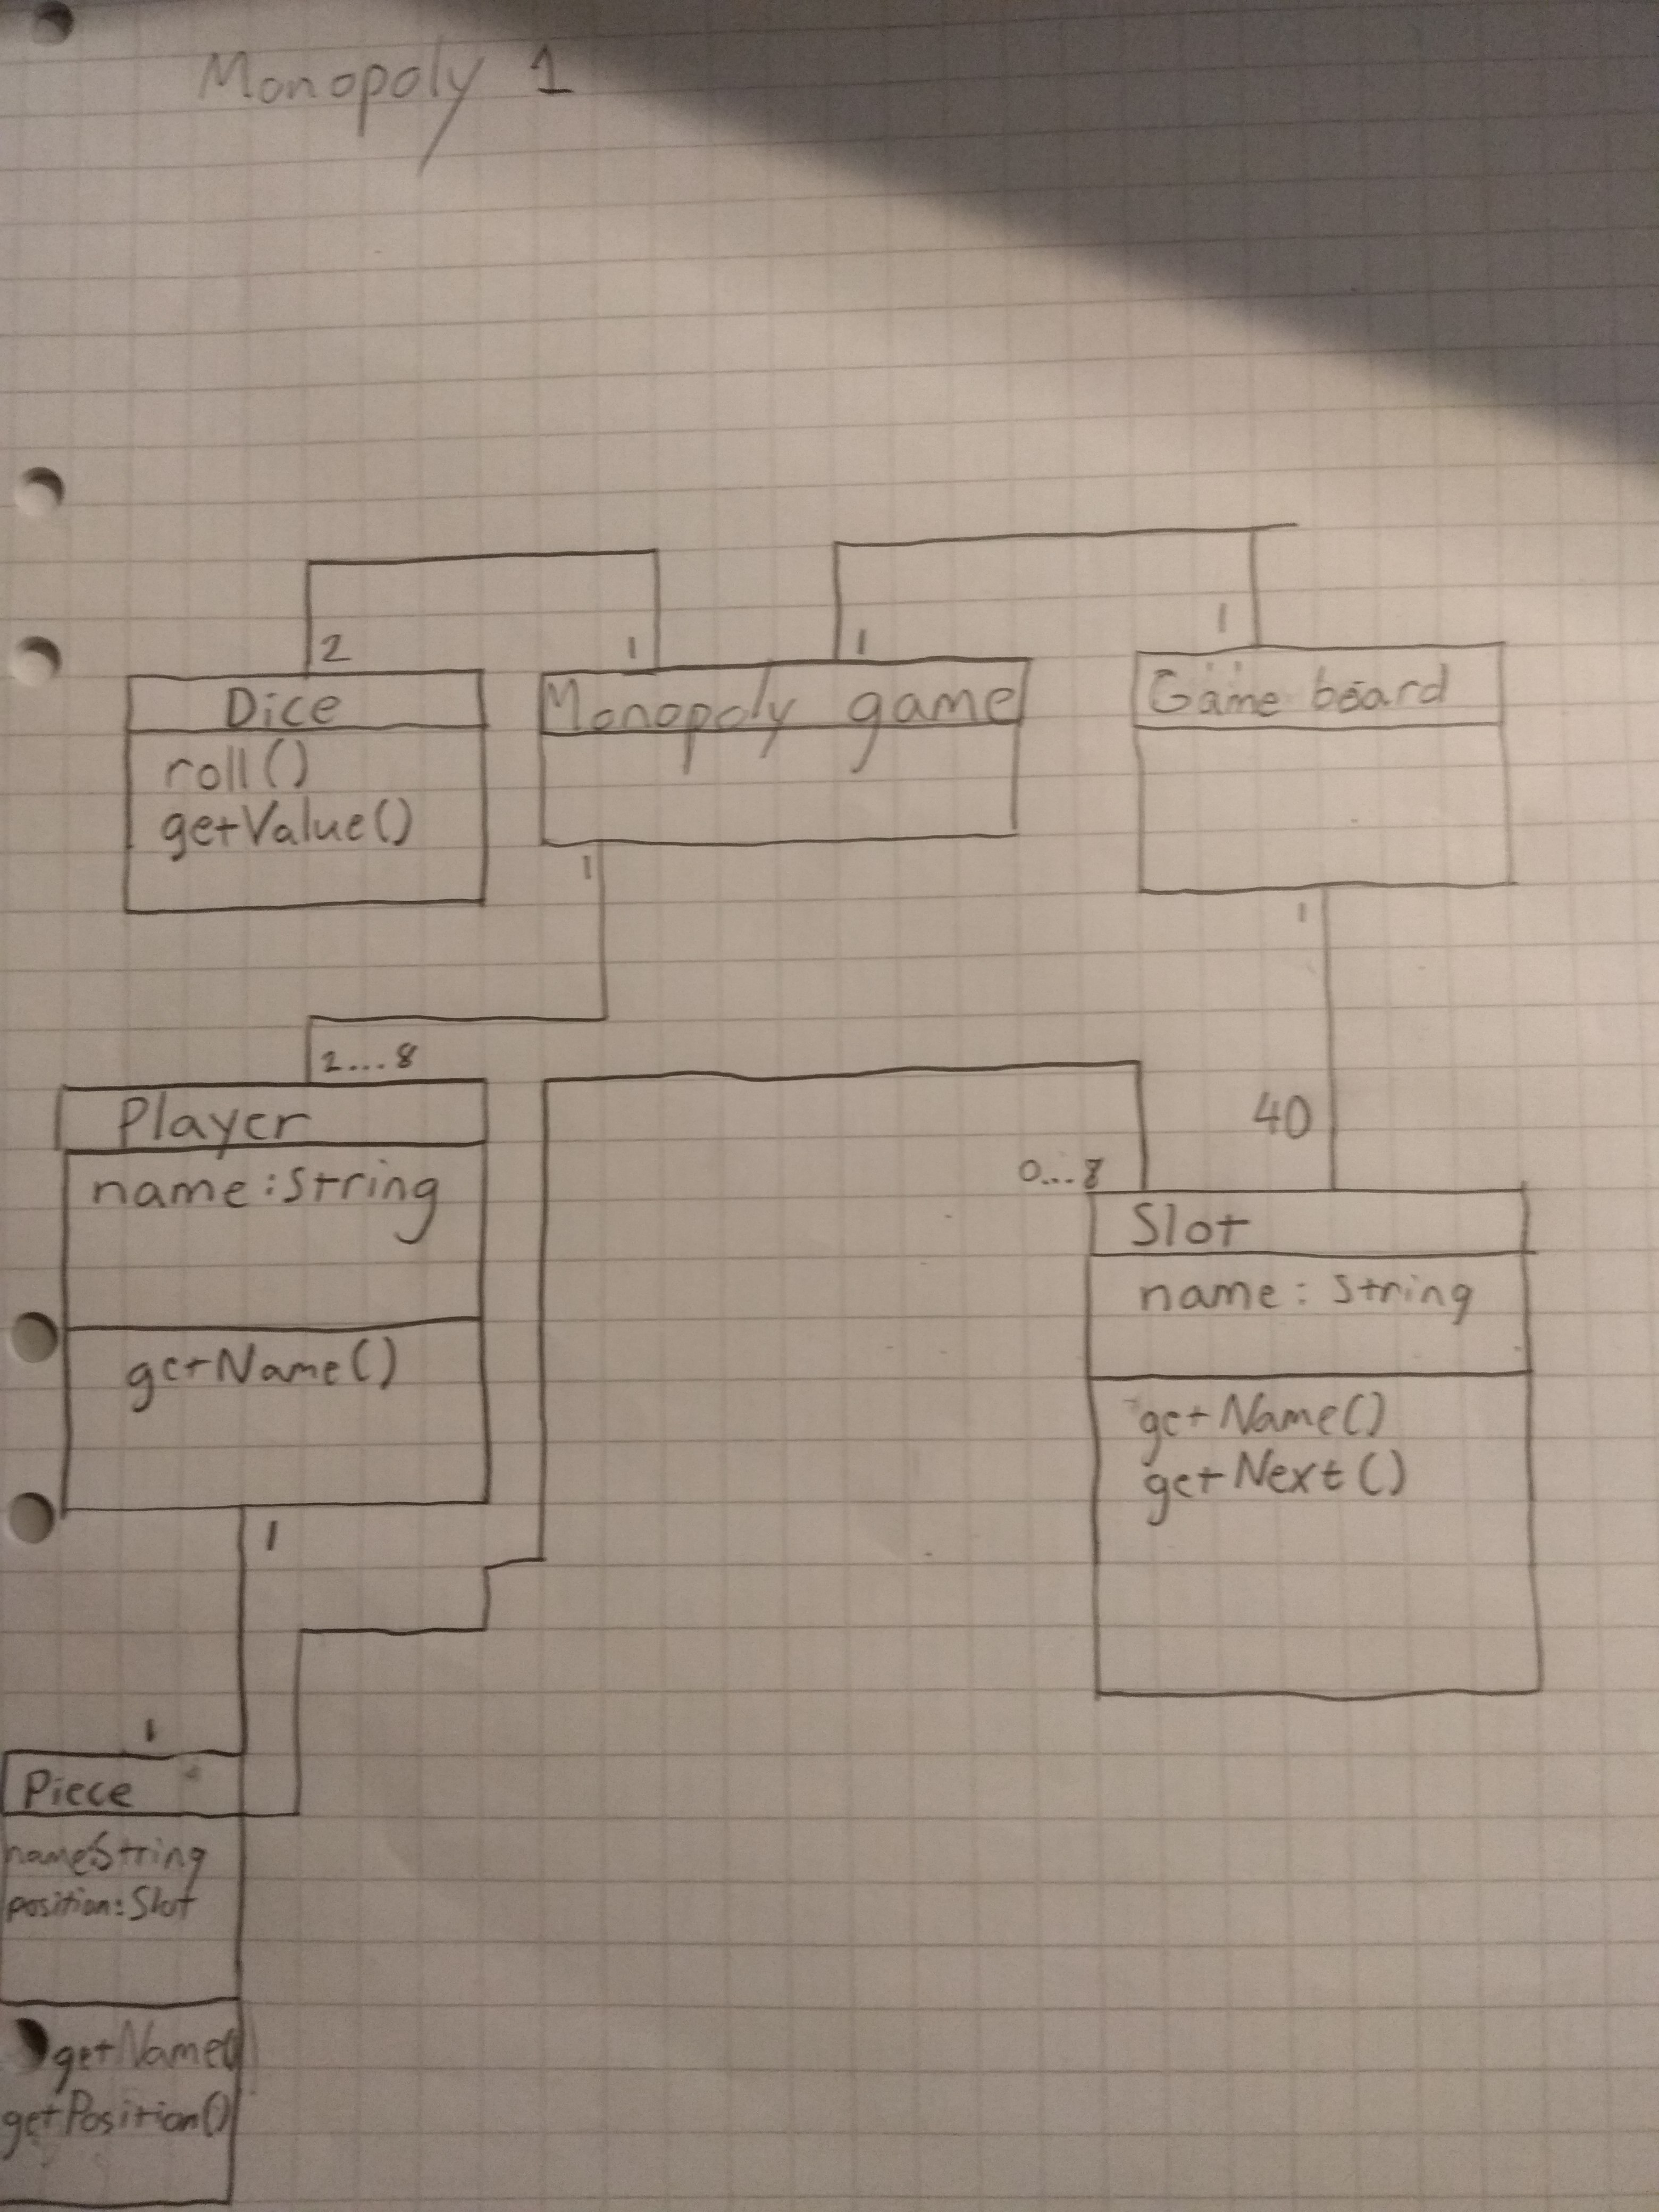 Monopoly 1
2
1
1
1
Dice
roll()
getValue()
Monopoly game
1
Game board
1
2....8
Player
name:String
getName()
1
40
0...8
Slot
name: String
getName()
getNext()
1
Piece
name:String
position:Slot
getName()
getPosition()